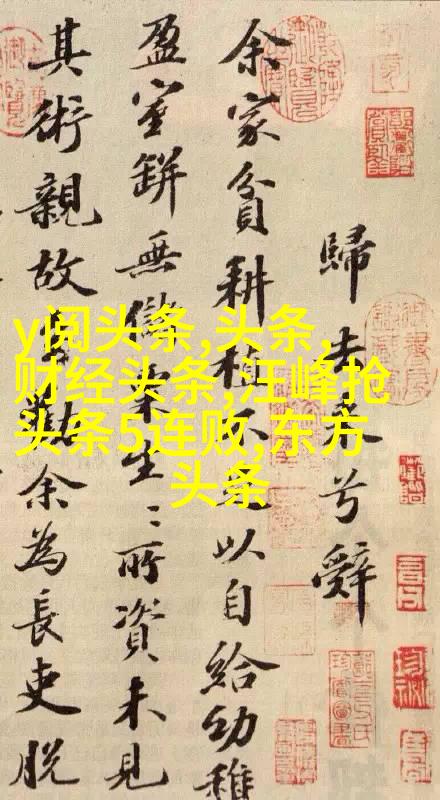 歸去来兮辭
余家貧耕植不以自給幼稚
盈室缾無儲粟生〻所資未見
其術親故勸余為長吏脫
y阅头条,头条,
财经头条,汪峰抢
头条5连败,东方
头条